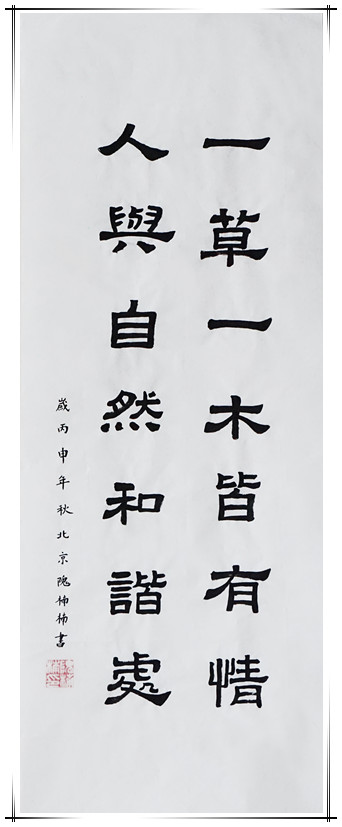 一草一木皆有情
人與自然和諧處
歲丙申年秋北京隗柿柿書